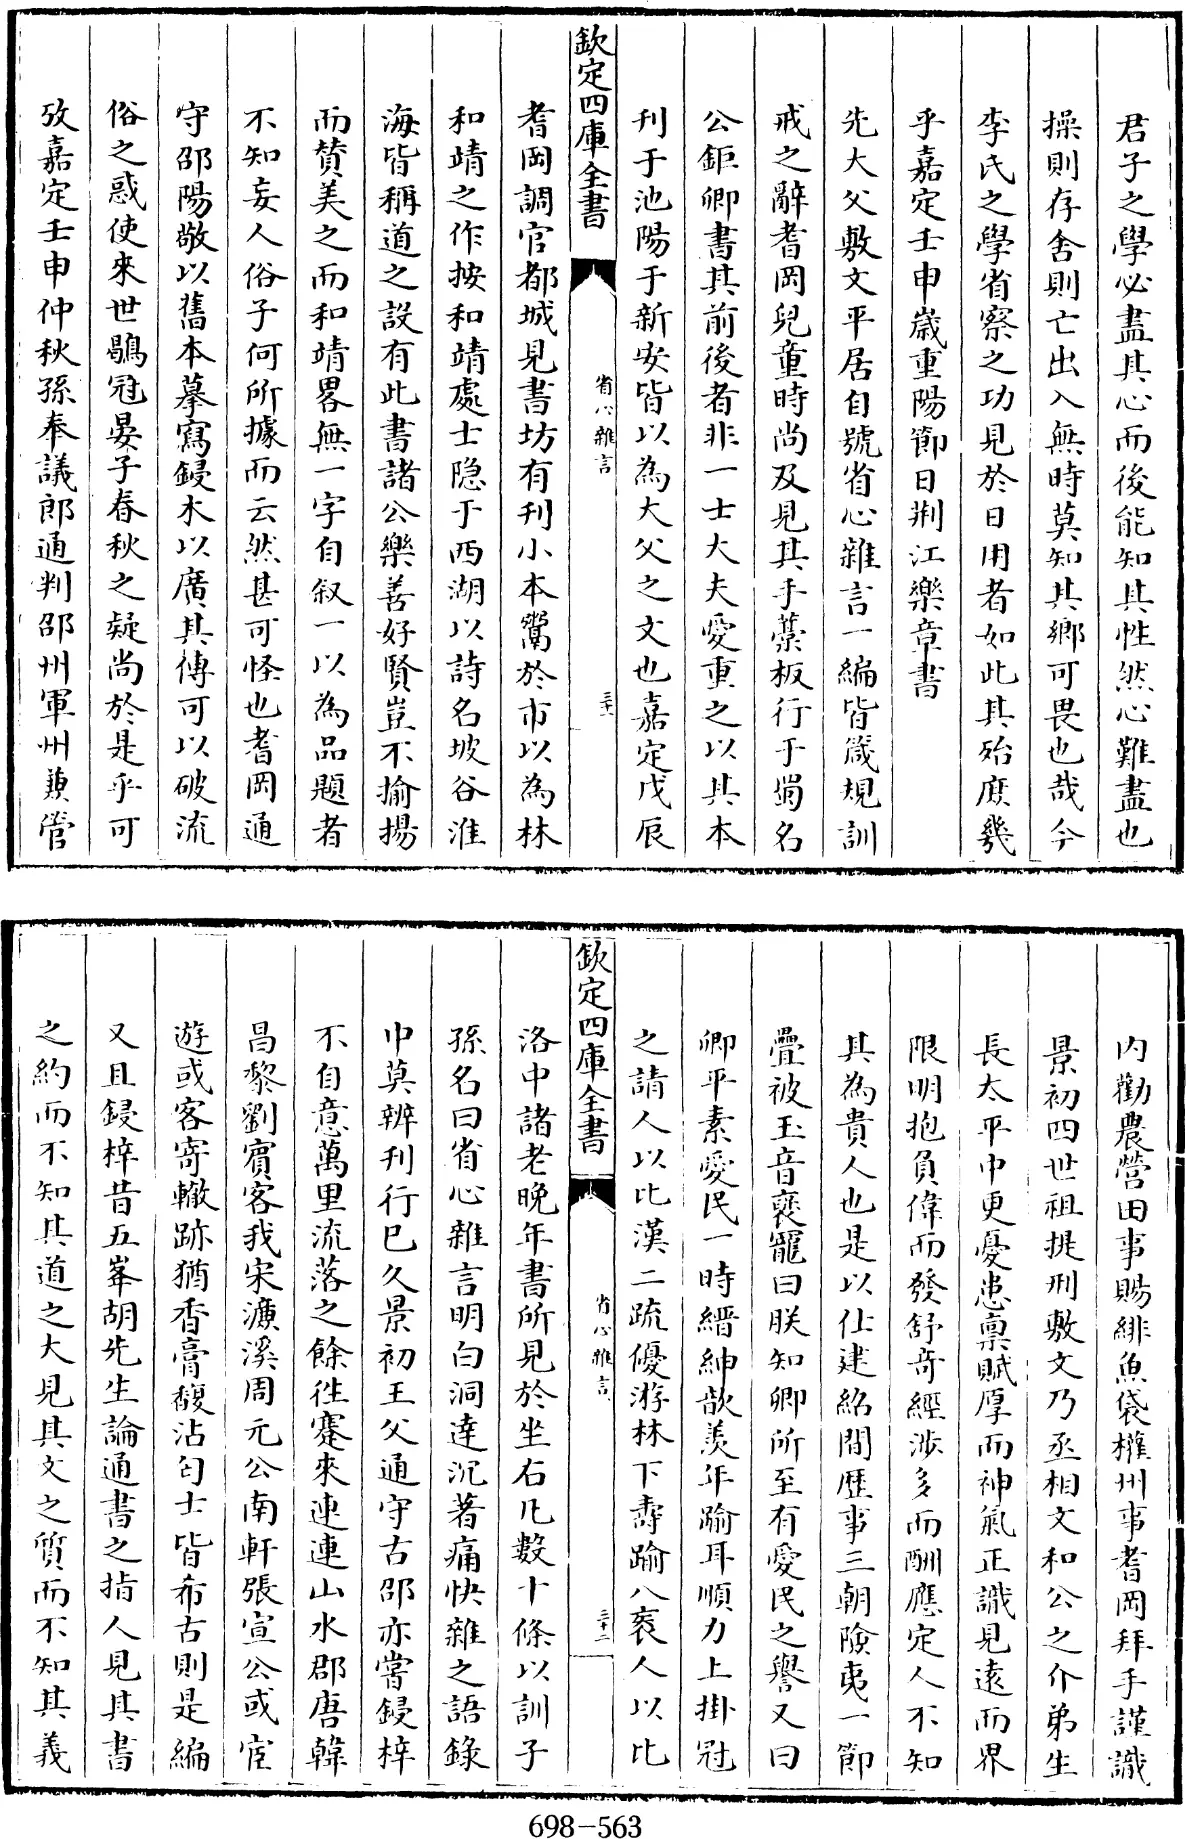 君子之學必盡其心而後能知其性然心難盡也
操則存舍則亡出入無時莫知其鄉可畏也哉今
李氏之學省察之功見於日用者如此其殆庶幾
乎嘉定壬申歲重陽節日荆江樂章書
先大父敷文平居自號省心雜言一編皆箴規訓
戒之辭耆岡兒童時尚及見其手藳板行于蜀名
公鉅卿書其前後者非一士大夫愛重之以其本
刊于池陽于新安皆以為大父之文也嘉定戊辰
欽定四庫全書
省心雜言
三十一
耆岡調官都城見書坊有刊小本鬻於市以為林
和靖之作按和靖處士隐于西湖以詩名坡谷淮
海皆稱道之設有此書諸公樂善好賢豈不揄揚
而賛美之而和靖畧無一字自叙一以為品題者
不知妄人俗子何所據而云然甚可怪也耆岡通
守邵陽敬以舊本摹寫鋟木以廣其傳可以破流
俗之惑使來世鶡冠晏子春秋之疑尚於是乎可
攷嘉定壬申仲秋孫奉議郎通判邵州軍州兼管
內勸農營田事賜緋魚袋權州事耆岡拜手謹識
景初四世祖提刑敷文乃丞相文和公之介弟生
長太平中更憂患禀賦厚而神氣正識見遠而界
限明抱負偉而發舒竒經涉多而酬應定人不知
其為貴人也是以仕建紹間歷事三朝險夷一節
疊被玉音褒寵曰朕知卿所至有愛民之譽又曰
卿平素愛民一時縉紳歆羡年踰耳順力上掛冠
之請人以比漢二疏優游林下壽踰八袠人以比
欽定四庫全書
省心雜言
三十二
洛中諸老晚年書所見於坐右凡數十條以訓子
孫名曰省心雜言明白洞達沉著痛快雜之語錄
中莫辨刊行已久景初王父通守古邵亦嘗鋟梓
不自意萬里流落之餘徃蹇來連連山水郡唐韓
昌黎劉賓客我宋濂溪周元公南軒張宣公或宦
遊或客寄轍跡猶香膏馥沾匄士皆希古則是編
又且鋟梓昔五峯胡先生論通書之指人見其書
之約而不知其道之大見其文之質而不知其義
698-563